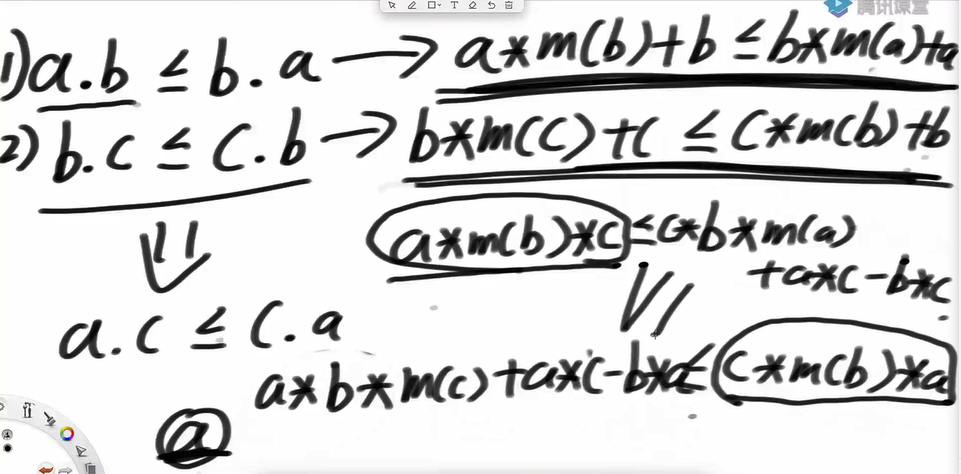 腾讯课堂
1) a.b ≤ b.a → a*m(b)+b ≤ b*m(a)+a
2) b.c ≤ c.b → b*m(c)+c ≤ c*m(b)+b
a*m(b)*c ≤ c*b*m(a)
+a*c-b*c
a.c ≤ c.a
a*b*m(c)+a*c-b*a ≤ c*m(b)*a
a